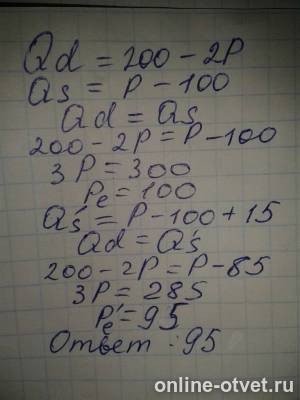 Qd = 200 - 2P
Qs = P - 100
Qd = Qs
200 - 2P = P - 100
3P = 300
Pe = 100
Qs' = P - 100 + 15
Qd = Q's
200 - 2P = P - 85
3P = 285
Pe' = 95
Ответ : 95
online-otvet.ru